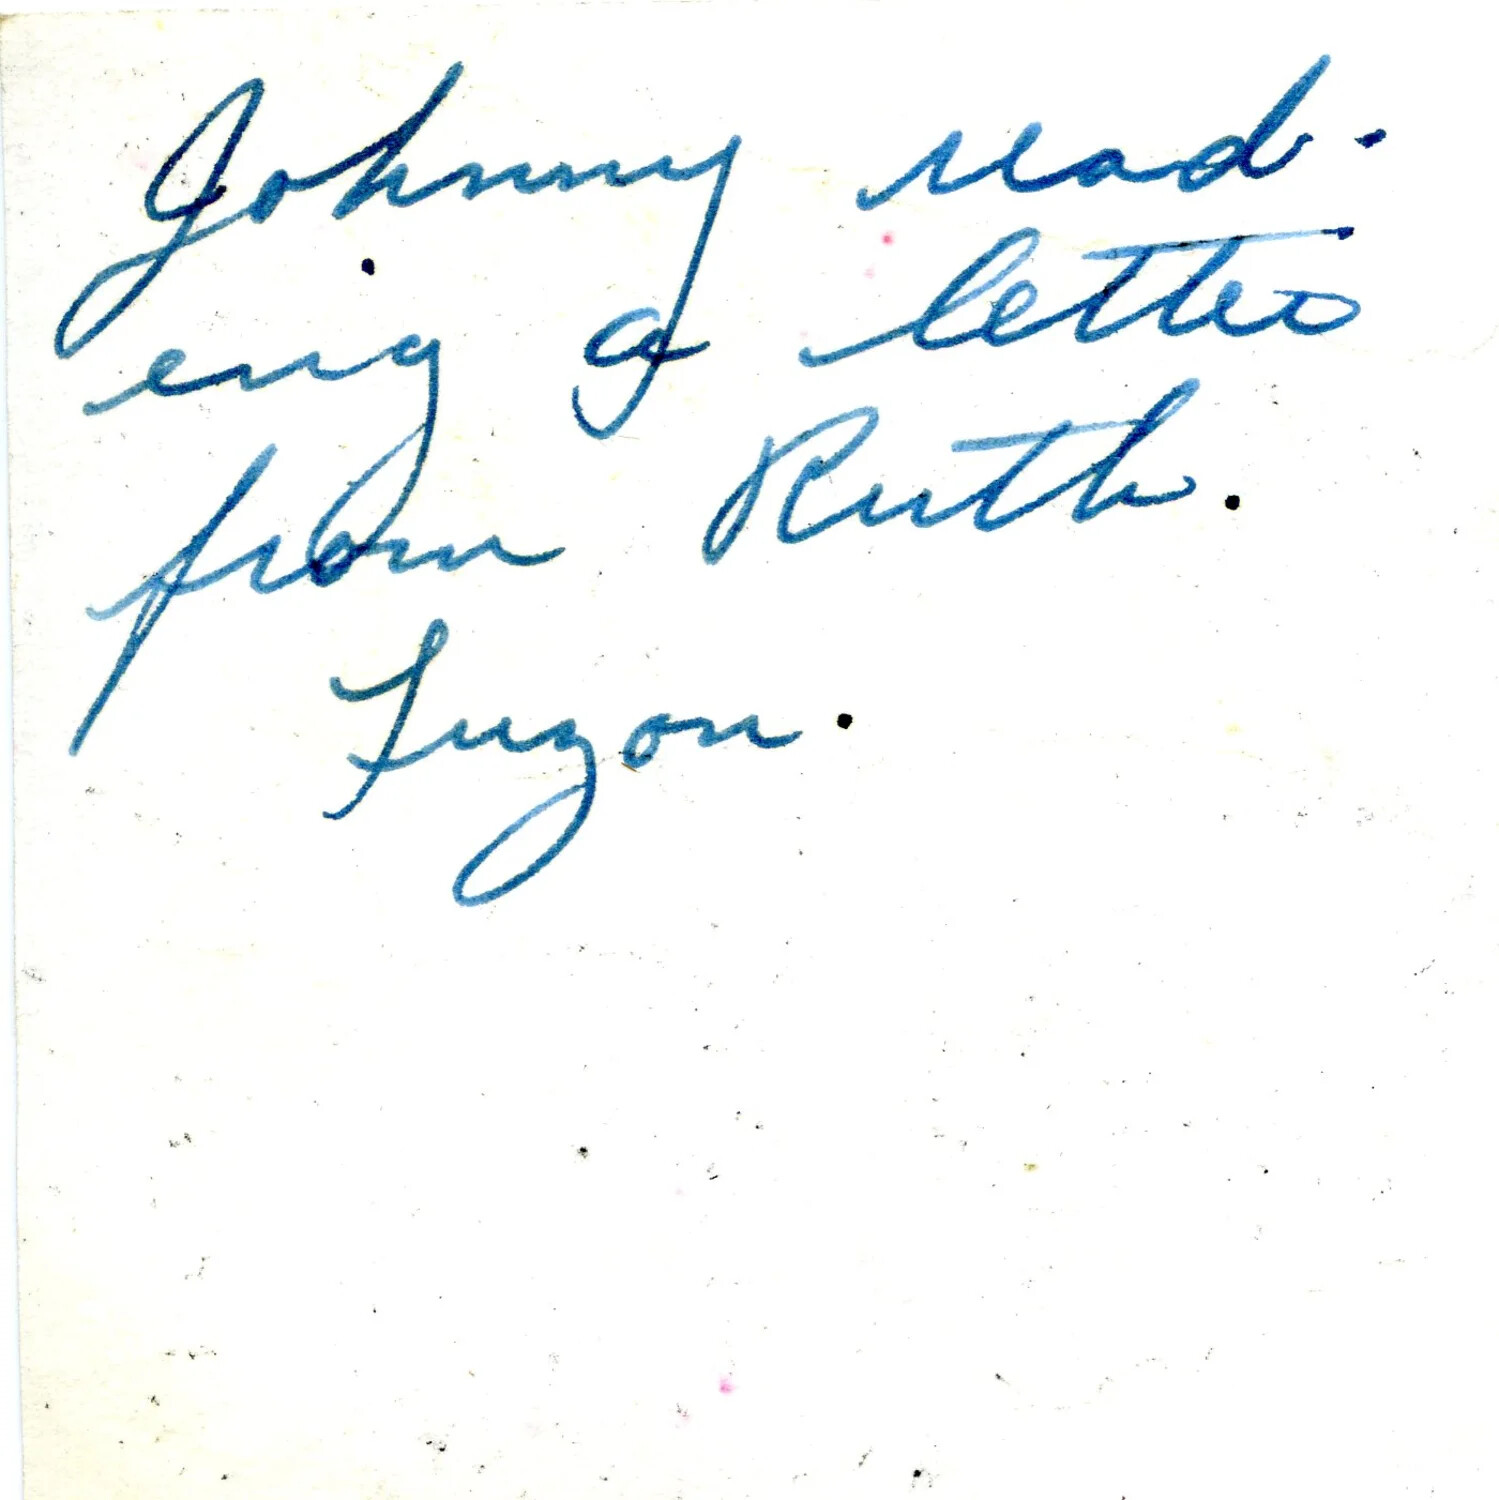 Johnny read-
ing a letter
from Ruth.
Luzon.